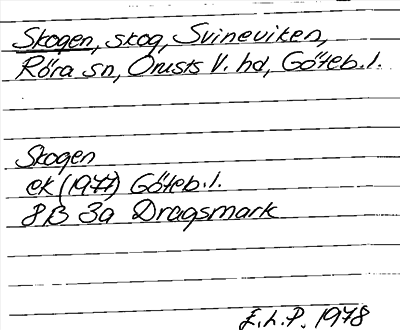 Skogen, skog, Svineviken,
Röra sn, Orusts V. hd, Göteb. l.
Skogen
ek (1977) Göteb. l.
8B 3a Dragsmark
E.L.P. 1978